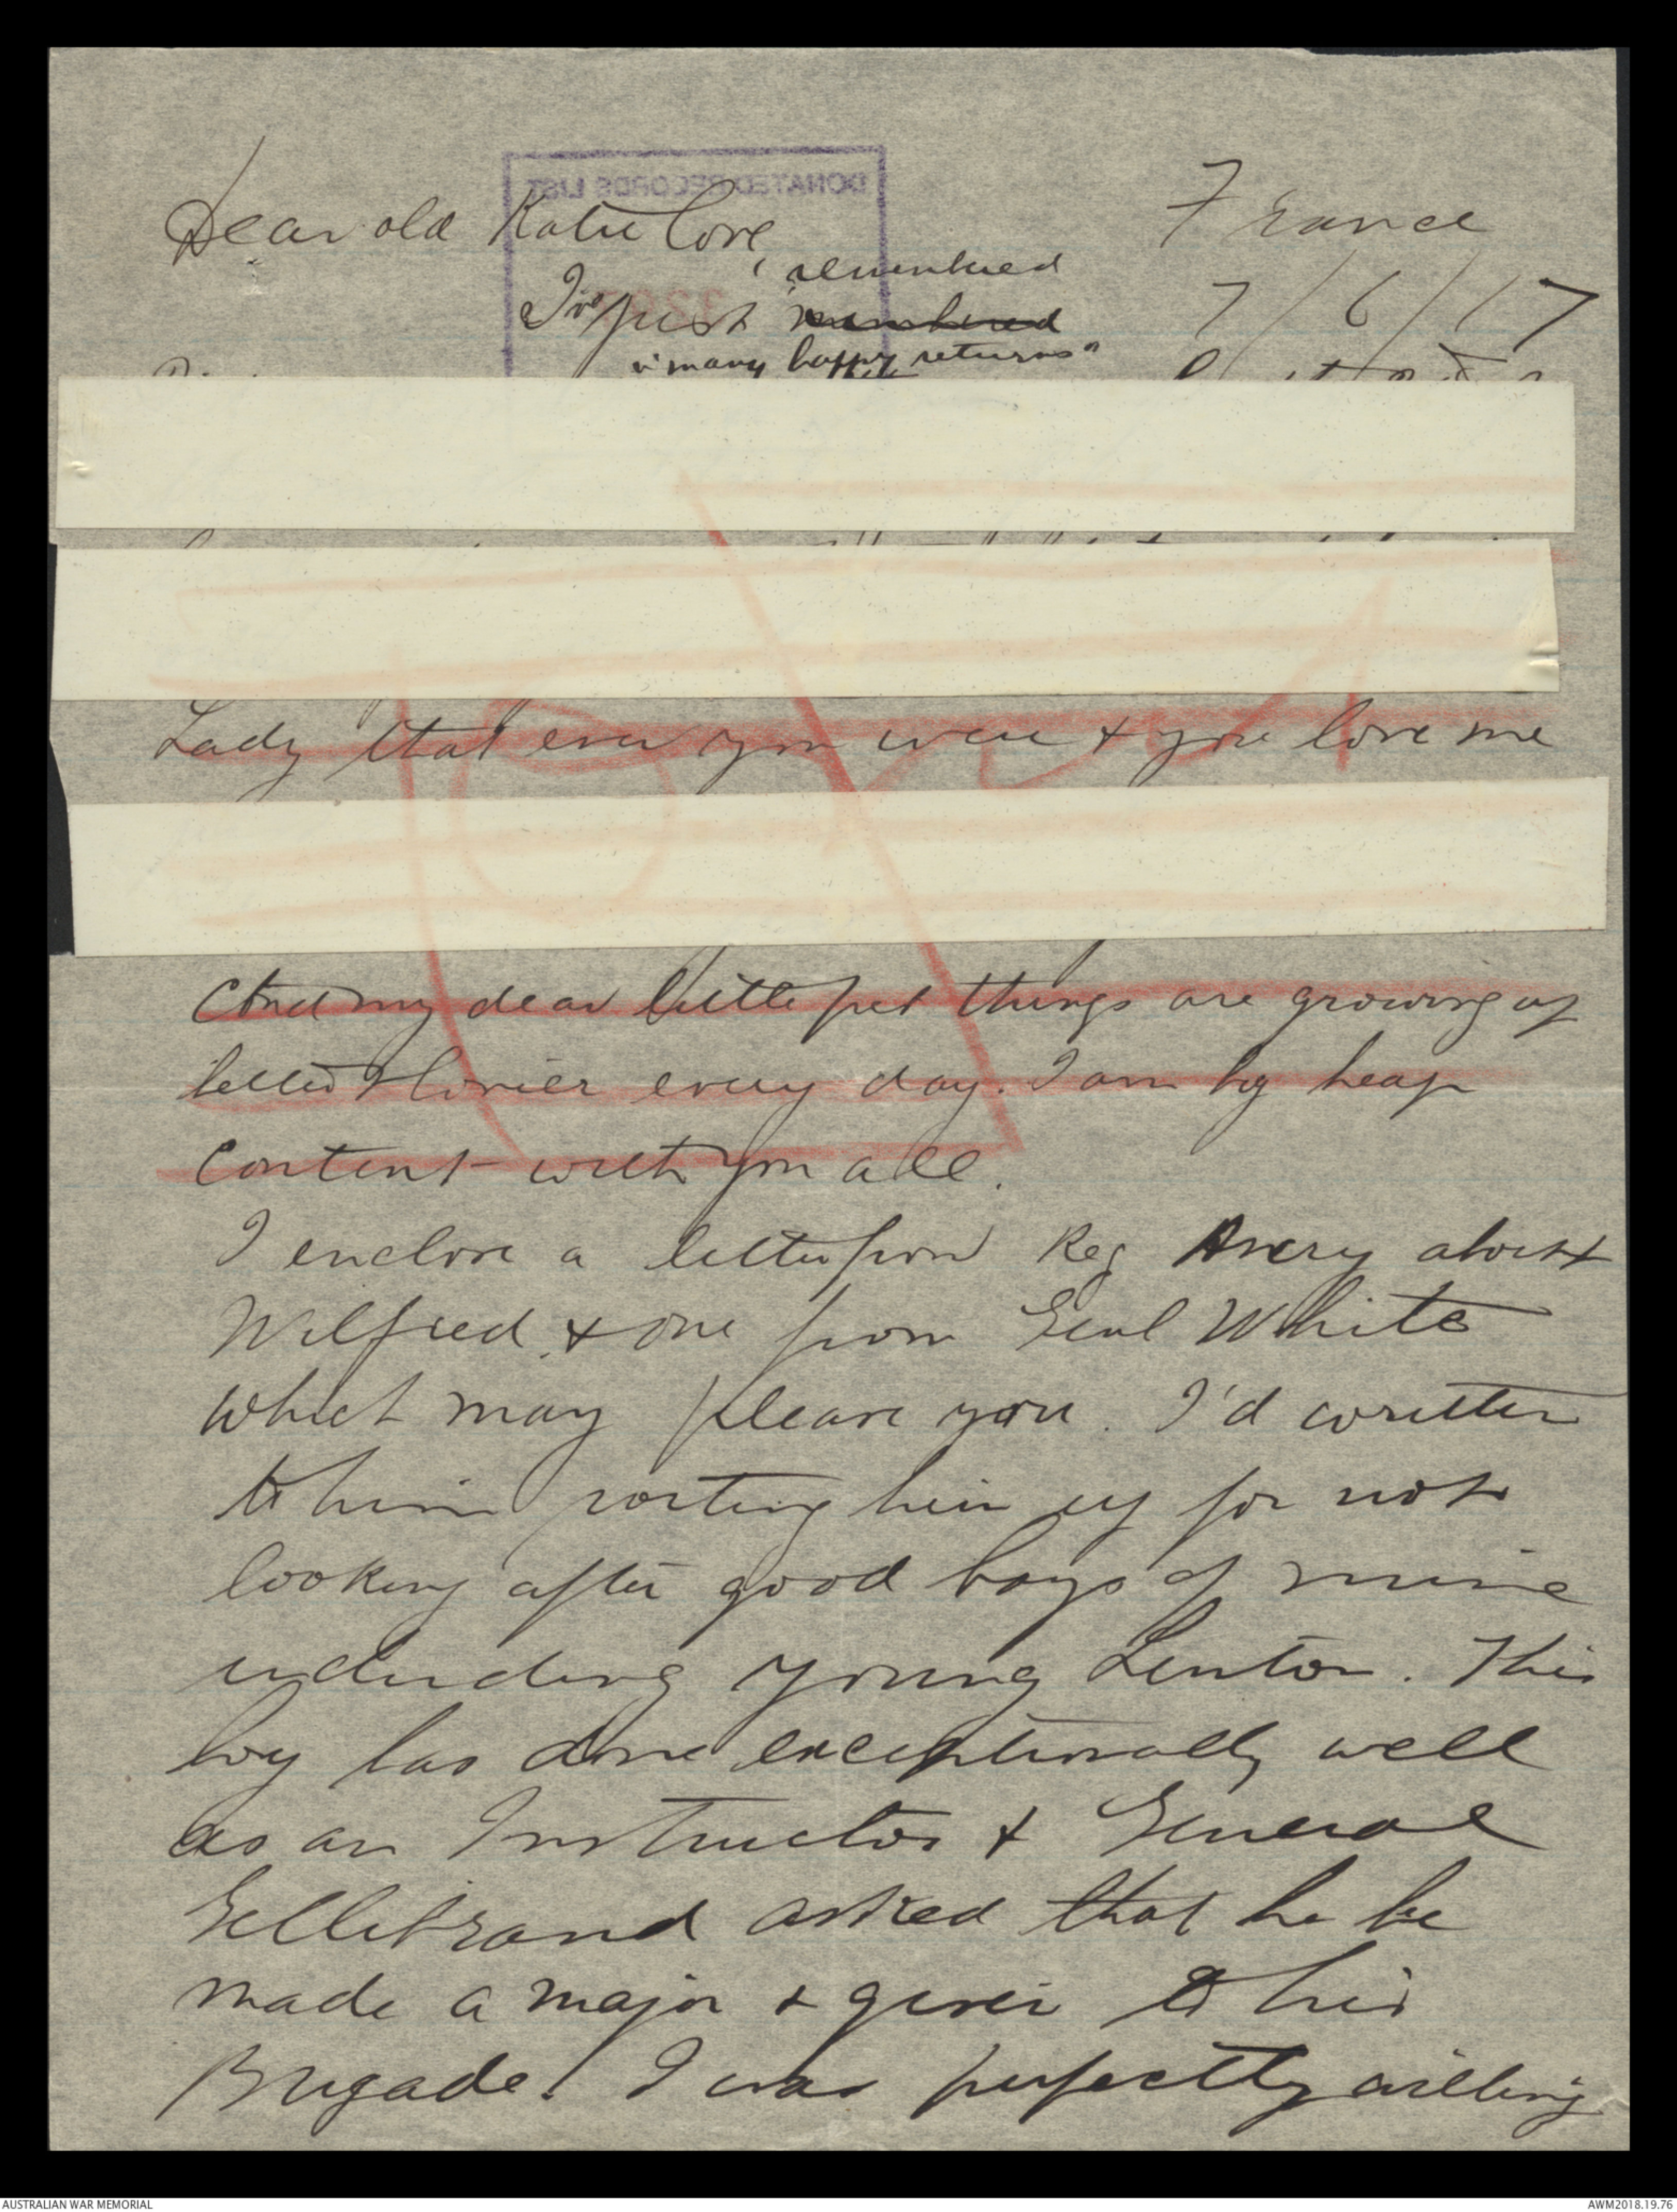 Dear old Katie love,
France
I've just remembered
numbered
7/6/17
"many happy returns"
DONATED RECORDS LIST
Lady that ever you were & you love me
And my dear little pet things are growing up
better & lovier every day. I am big heap
content with you all.
I enclose a letter from Reg Avery about
Wilfred & one from Genl White
which may please you. I'd written
to him roasting him up for not
looking after good boys of mine
including young Lenton. This
boy has done exceptionally well
as an Instructor & General
Gellibrand asked that he be
made a major & given to his
Brigade! I was perfectly willing
AUSTRALIAN WAR MEMORIAL
AWM2018.19.76